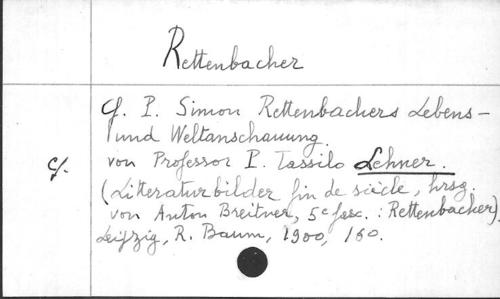 Rettenbacher
Cf. P. Simon Rettenbachers Lebens-
und Weltanschauung.
cf. von Professor P. Tassilo Lehner.
(Litteraturbilder fin de siècle, hrsg.
von Anton Breitner, 5e fasc. : Rettenbacher)
Leipzig, R. Baum, 1900, 160.